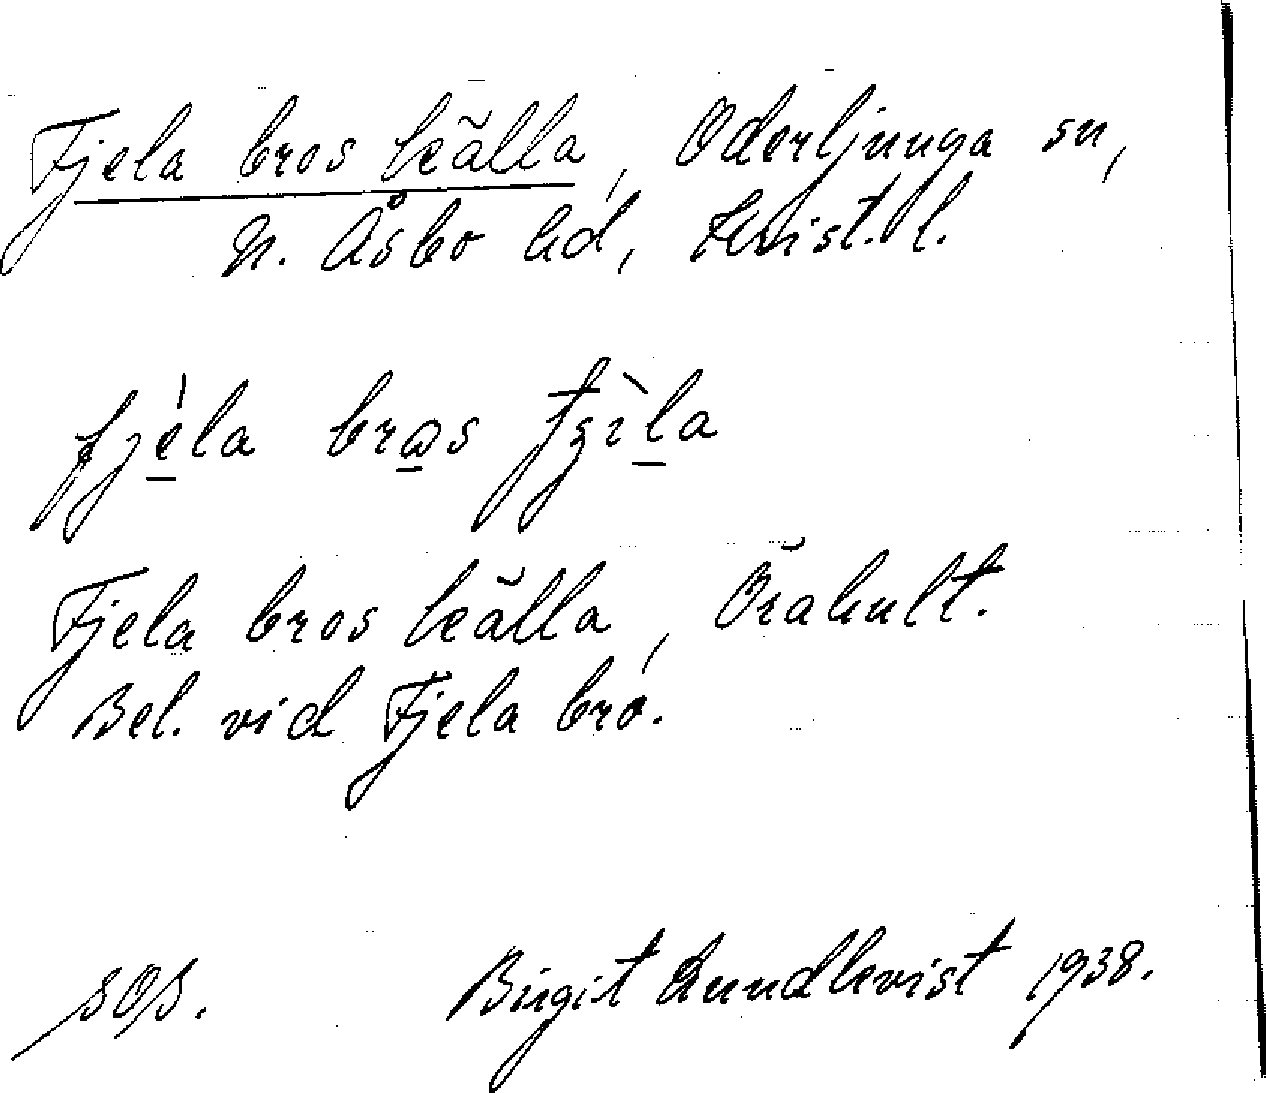 Fjela bros källa, Oderljunga sn,
N. Åsbo hd, Krist. l.
fjèla bros
Fjela bros källa, Örahult.
Bel. vid Fjela bro.
SOS. Birgit Lundkvist 1938.